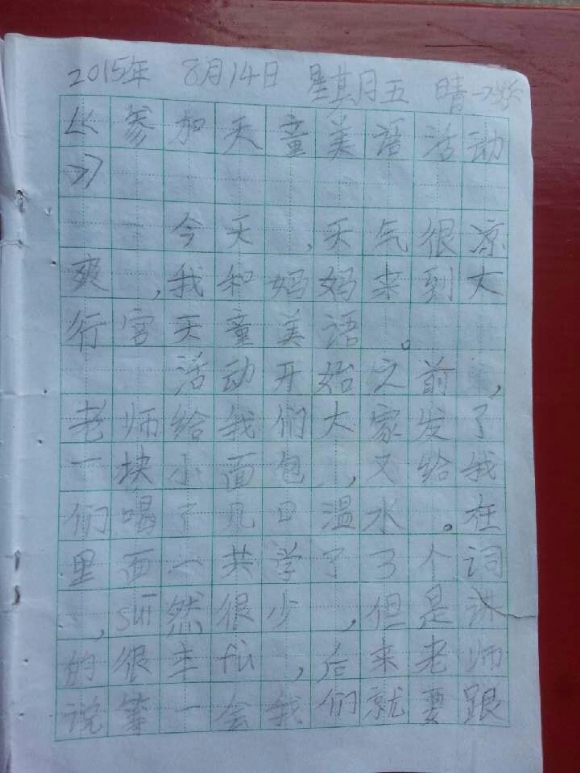 2015年 8月14日 星期五 晴
《参加天童美语活动
》
今天,天气很凉
爽,我和妈妈来到大
行宫天童美语。
活动开始之前,
老师给我们大家发了
一块小面包,又给我
们喝了几口温水。在
里面一共学了3个词
,suī然很少,但是讲
的很丰fù,后来老师
说等一会我们就要跟